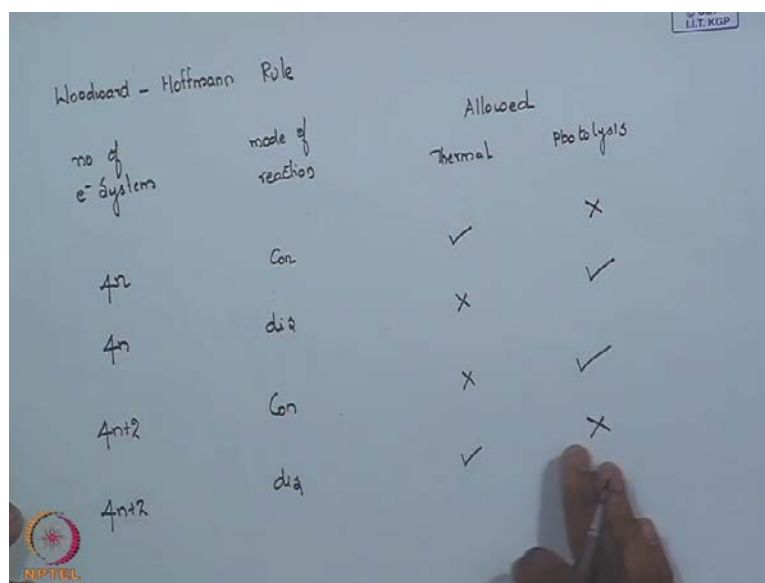 I.I.T. KGP
Woodward - Hoffmann Rule
Allowed
no of e⁻ system
mode of reaction
Thermal
Photolysis
4n Con ✓ ×
4n dis × ✓
4n+2 Con × ✓
4n+2 dis ✓ ×
NPTEL